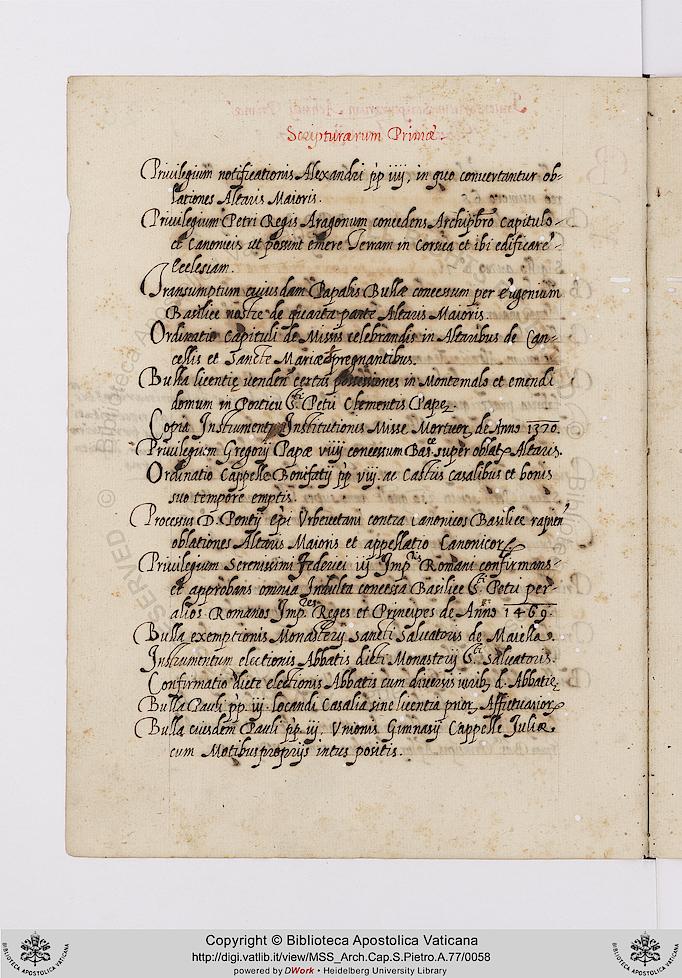 Scripturarum Primæ.
Privilegium notificationis Alexandri p̄p iiij, in quo convertantur ob-
lationes Altaris Maioris.
Privilegium Petri Regis Aragonum concedens Archip̄bro Capitulo
et Canonicis ut possint emere Terram in Corsica et ibi edificare
Ecclesiam.
Transumptum cuiusdam Papalis Bullæ concessum per Eugenium
Basilice nostre de quarta parte Altaris Maioris.
Ordinatio Capituli de Missis celebrandis in Altaribus de Can-
cellis et Sanctæ Mariæ pregnantibus.
Bulla licentię uenden' certas possessiones in Montemalo et emendi
domum in Porticu S.ti Petri Clementis Papę
Copia Instrumenti Institutionis Misse Mortuor' de Anno 1370.
Privilegium Gregorij Papæ viiij concessum Bas.ce super oblat' Altaris.
Ordinatio Cappelle Bonifatij p̄p viij. ac Castris casalibus et bonis
suo tempore emptis.
Processus D. Pontij ep̄i Urbevetani contra Canonicos Basilicæ rapien'
oblationes Altaris Maioris et appellatio Canonicor'
Privilegium Serenissimi Federici iij Imp.ris Romani confirmans
et approbans omnia Indulta concessa Basilicæ S.ti Petri per
alios Romanos Imp.res Reges et Principes de Anno 1469.
Bulla exemptionis Monasterij Sancti Salvatoris de Maiella.
Instrumentum electionis Abbatis dicti Monasterij S.ti Salvatoris.
Confirmatio dictę electionis Abbatis cum diversis iurib' d. Abbatię
Bulla Pauli p̄p iij. locandi Casalia sine licentia prior' Affictuarior'
Bulla eiusdem Pauli p̄p iij. Unionis Gimnasij Cappellæ Juliæ
cum Motibusproprijs intus positis.
Copyright © Biblioteca Apostolica Vaticana
http://digi.vatlib.it/view/MSS_Arch.Cap.S.Pietro.A.77/0058
powered by DWork • Heidelberg University Library